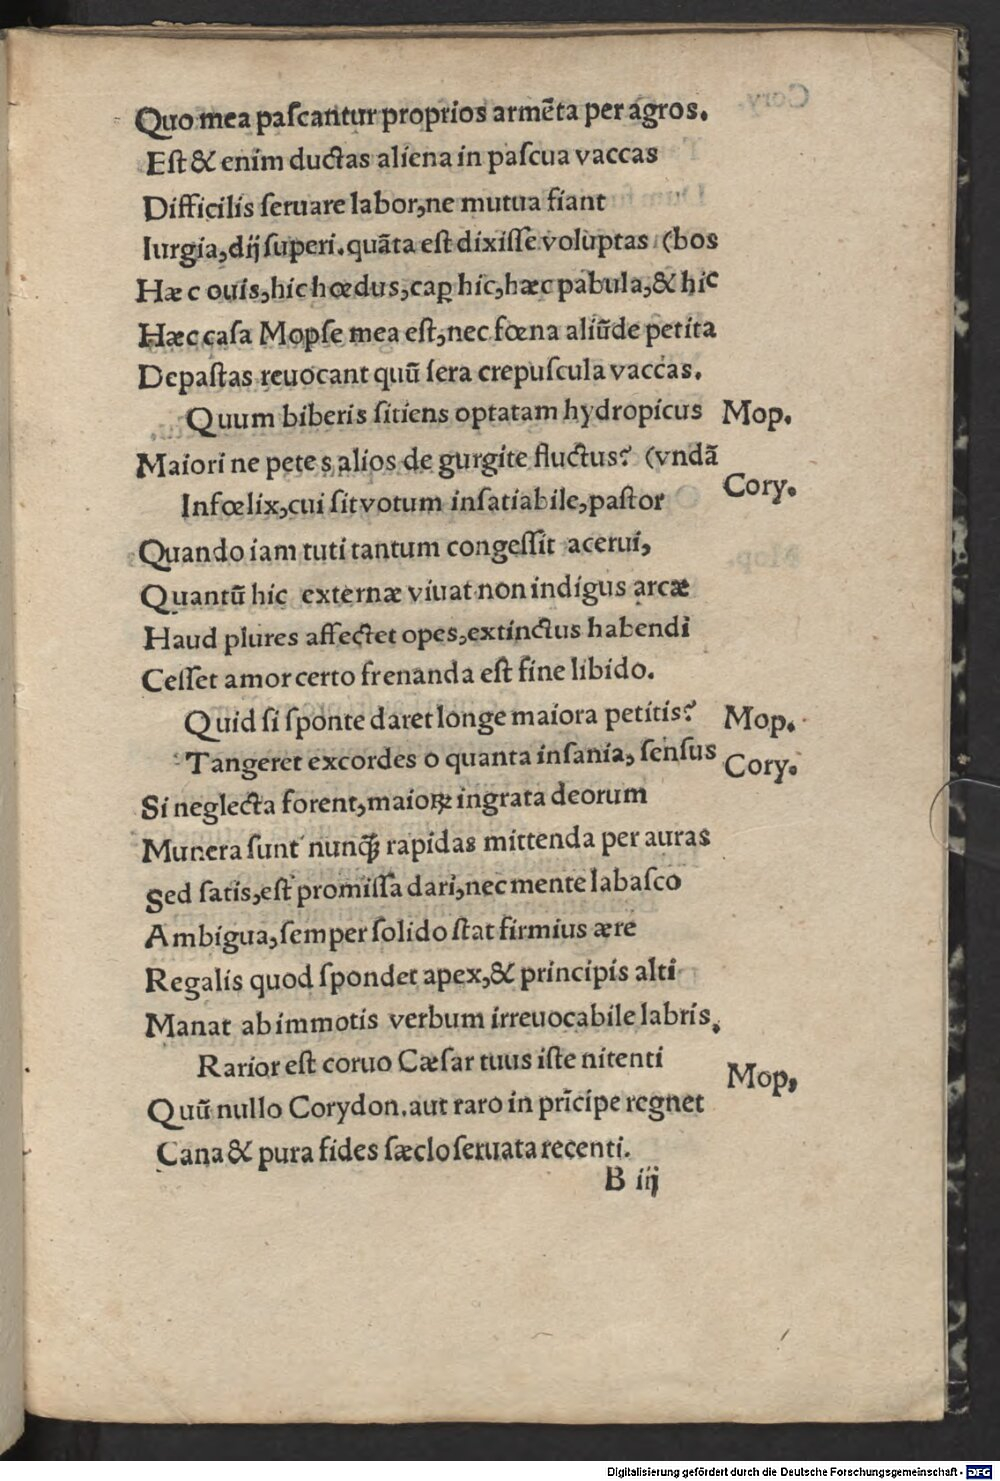 Quo mea paſcantur proprios armẽta per agros.
Eſt & enim ductas aliena in paſcua vaccas
Difficilis ſeruare labor, ne mutua fiant
Iurgia, dij ſuperi. quãta eſt dixiſſe voluptas (bos
Hæc ouis, hic hœdus, caꝑ hic, hæc pabula, & hic
Hæc caſa Mopſe mea eſt, nec fœna aliũde petita
Depaſtas reuocant quũ ſera crepuſcula vaccas.
Quum biberis ſitiens optatam hydropicus Mop.
Maiori ne petes alios de gurgite fluctus? (vndã
Infœlix, cui ſit votum inſatiabile, paſtor Cory.
Quando iam tuti tantum congeſſit acerui,
Quantũ hic externæ viuat non indigus arcæ
Haud plures affectet opes, extinctus habendi
Ceſſet amor certo frenanda eſt fine libido.
Quid ſi ſponte daret longe maiora petitis? Mop.
Tangeret excordes o quanta inſania, ſenſus Cory.
Si neglecta forent, maioꝝ ingrata deorum
Munera ſunt nunꝗ̃ rapidas mittenda per auras
Sed ſatis, eſt promiſſa dari, nec mente labaſco
Ambigua, ſemper ſolido ſtat firmius ære
Regalis quod ſpondet apex, & principis alti
Manat ab immotis verbum irreuocabile labris.
Rarior eſt coruo Cæſar tuus iſte nitenti Mop,
Quũ nullo Corydon. aut raro in prĩcipe regnet
Cana & pura fides ſæclo ſeruata recenti.
B iij
Digitalisierung gefördert durch die Deutsche Forschungsgemeinschaft - DFG